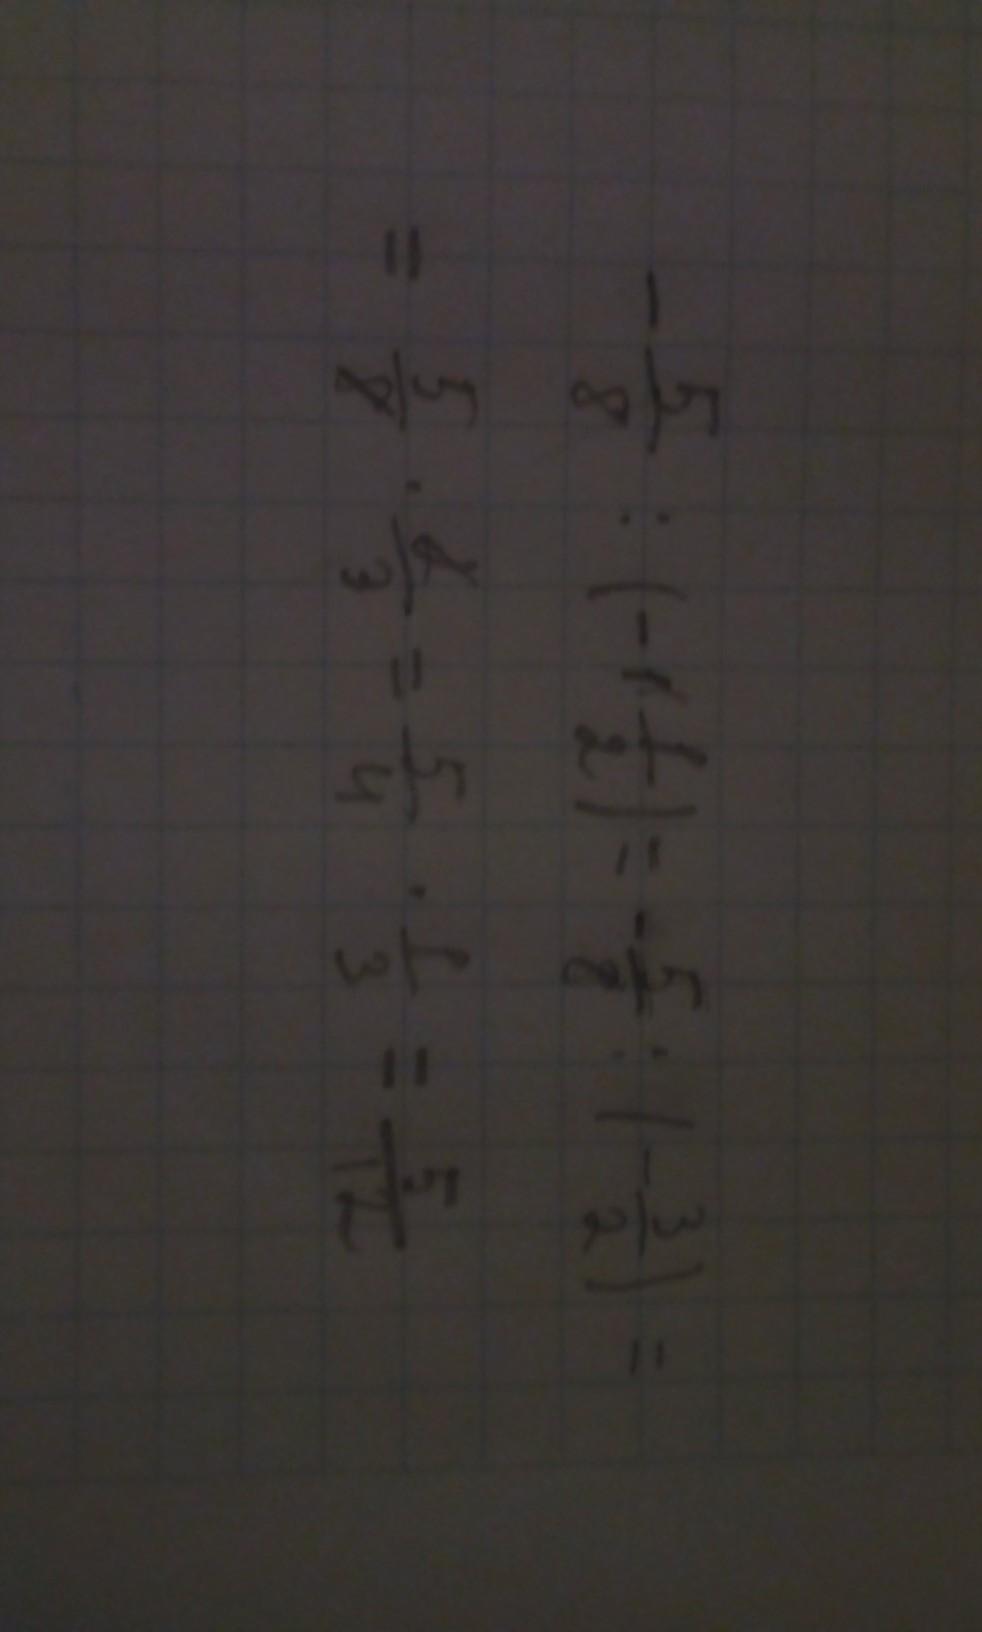 -5/8 : (-1 1/2) = -5/8 : (-3/2) =
= 5/8 · 2/3 = 5/4 · 1/3 = 5/12